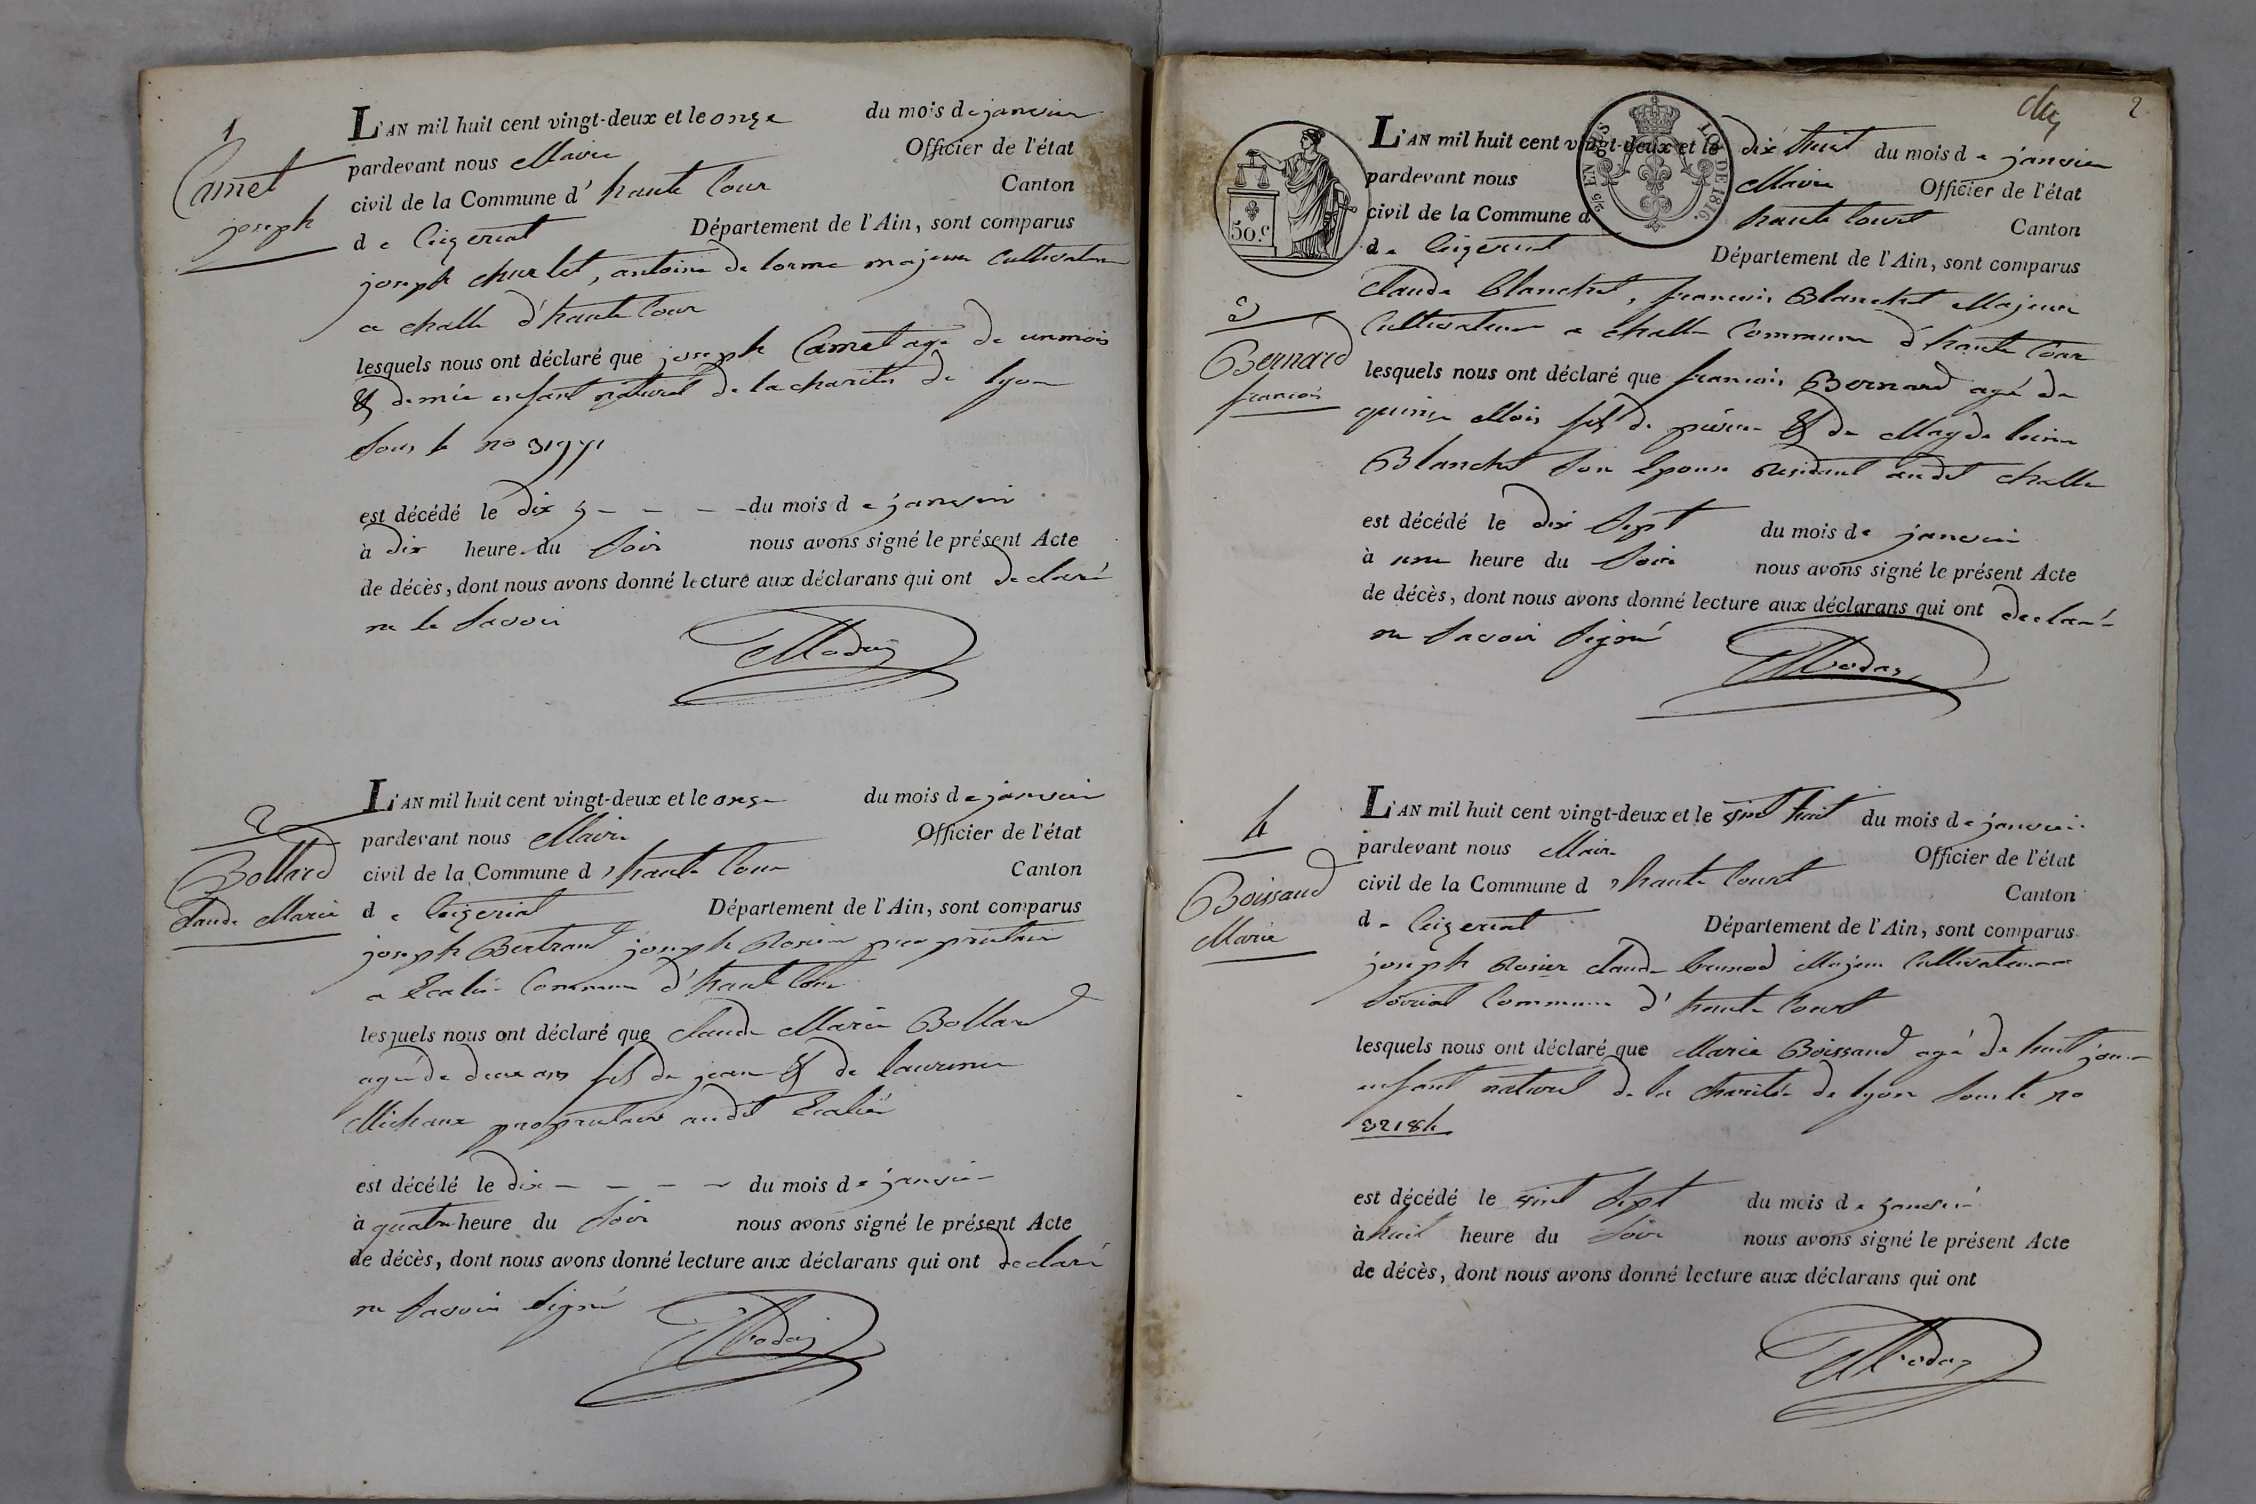 1
Camet
joseph
L'AN mil huit cent vingt-deux et le onze du mois de janvier
pardevant nous Maire Officier de l'état
civil de la Commune d' haute Cour Canton
de Ceizeriat Département de l'Ain, sont comparus
joseph charlet, antoine de lorme majeur Cultivateur
a challe d'haute Cour
lesquels nous ont déclaré que joseph Camet agé de un mois
& demie enfant naturel de la charité de lyon
Sous le no
est décédé le dix du mois de janvier
à dix heure du Soir nous avons signé le présent Acte
de décès, dont nous avons donné lecture aux déclarans qui ont declaré
ne le Savoir
2
Bollard
Claude Marie
L'AN mil huit cent vingt-deux et le onze du mois de janvier
pardevant nous Maire Officier de l'état
civil de la Commune d'haute Cour Canton
de Ceizeriat Département de l'Ain, sont comparus
joseph Bertrand joseph Rosier proprietaire
a Commune d'haute Cour
lesquels nous ont déclaré que Claude Marie Bollard
agé de deux ans fils de jean & de laurence
Michaux proprietaire audit
est décédé le dix du mois de janvier
à quatre heure du Soir nous avons signé le présent Acte
de décès, dont nous avons donné lecture aux déclarans qui ont declaré
ne Savoir Signé
2
50.C
EN SUS
LOI DE 1816.
L'AN mil huit cent vingt-deux et le dix huit du mois de janvier
pardevant nous Maire Officier de l'état
civil de la Commune d haute Court Canton
de Ceizeriat Département de l'Ain, sont comparus
3
Bernard
francois
Claude Blanchet, francois Blanchet Majeur
Cultivateur a challe Commune d'haute Cour
lesquels nous ont déclaré que francois Bernard agé de
quinze Mois fils de pierre & de Magdeleine
Blanchet Son Epouse Residant audit challe
est décédé le dix Sept du mois de janvier
à une heure du Soir nous avons signé le présent Acte
de décès, dont nous avons donné lecture aux déclarans qui ont declaré
ne Savoir Signé
4
Boissaud
Marie
L'AN mil huit cent vingt-deux et le vint huit du mois de janvier
pardevant nous Maire Officier de l'état
civil de la Commune d'haute Court Canton
de Ceizeriat Département de l'Ain, sont comparus
joseph Rosier Claude Majeur Cultivateur a
Commune d'haute Court
lesquels nous ont déclaré que Marie Boissaud agé de huit jour
enfant naturel de la Charité de lyon Sous le no
32184
est décédé le vint Sept du mois de janvié
à huit heure du Soir nous avons signé le présent Acte
de décès, dont nous avons donné lecture aux déclarans qui ont